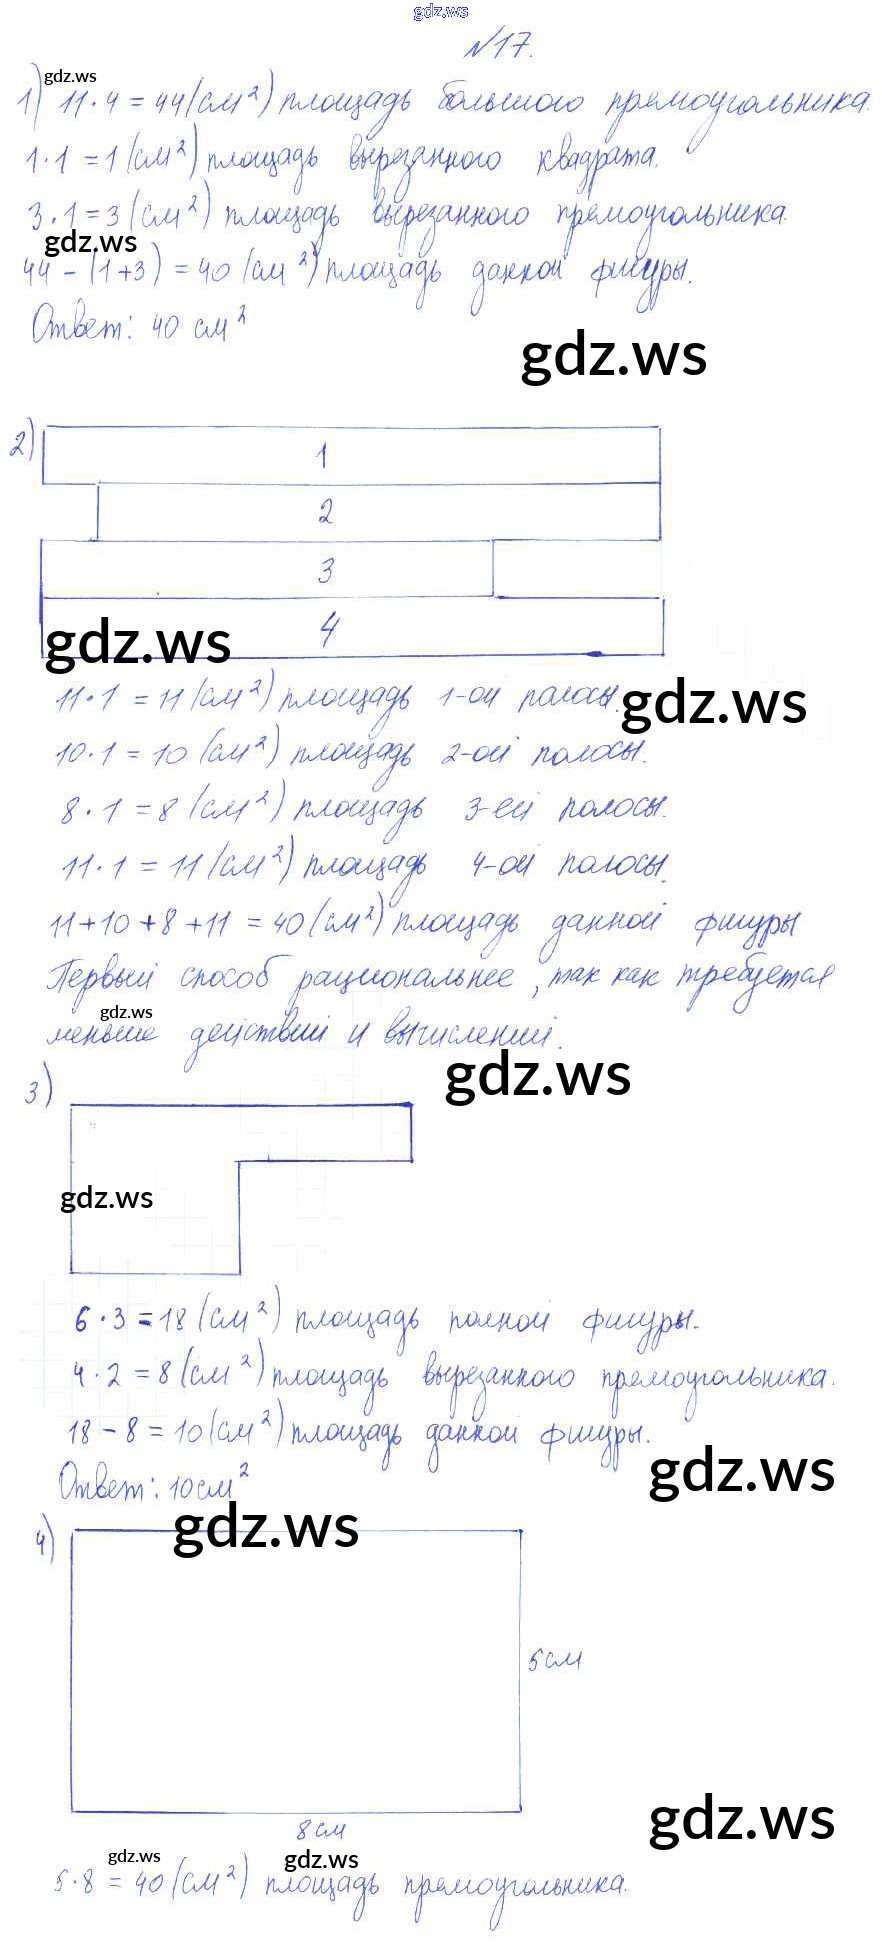 gdz.ws
№17.
gdz.ws
1) 11·4=44(см²) площадь большого прямоугольника.
1·1=1(см²) площадь вырезанного квадрата.
3·1=3(см²) площадь вырезанного прямоугольника.
gdz.ws
44-(1+3)=40(см²) площадь данной фигуры.
Ответ: 40 см²
gdz.ws
2)
1
2
3
4
gdz.ws
11·1=11(см²) площадь 1-ой полосы.
gdz.ws
10·1=10(см²) площадь 2-ой полосы.
8·1=8(см²) площадь 3-ей полосы.
11·1=11(см²) площадь 4-ой полосы.
11+10+8+11=40(см²) площадь данной фигуры
Первый способ рациональнее, так как требуется
gdz.ws
меньше действий и вычислений.
gdz.ws
3)
gdz.ws
6·3=18(см²) площадь полной фигуры.
4·2=8(см²) площадь вырезанного прямоугольника.
18-8=10(см²) площадь данной фигуры.
gdz.ws
Ответ: 10 см²
gdz.ws
4)
5 см
gdz.ws
8 см
gdz.ws
gdz.ws
5·8=40(см²) площадь прямоугольника.